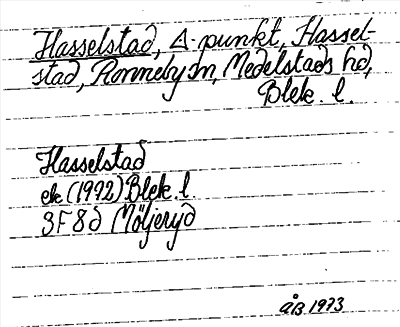 Hasselstad, Δ-punkt, Hassel-
stad, Ronneby sn, Medelstads hd,
Blek. l.
Hasselstad
ek (1992) Blek. l.
3F 8d Möljeryd
ÅB 1973